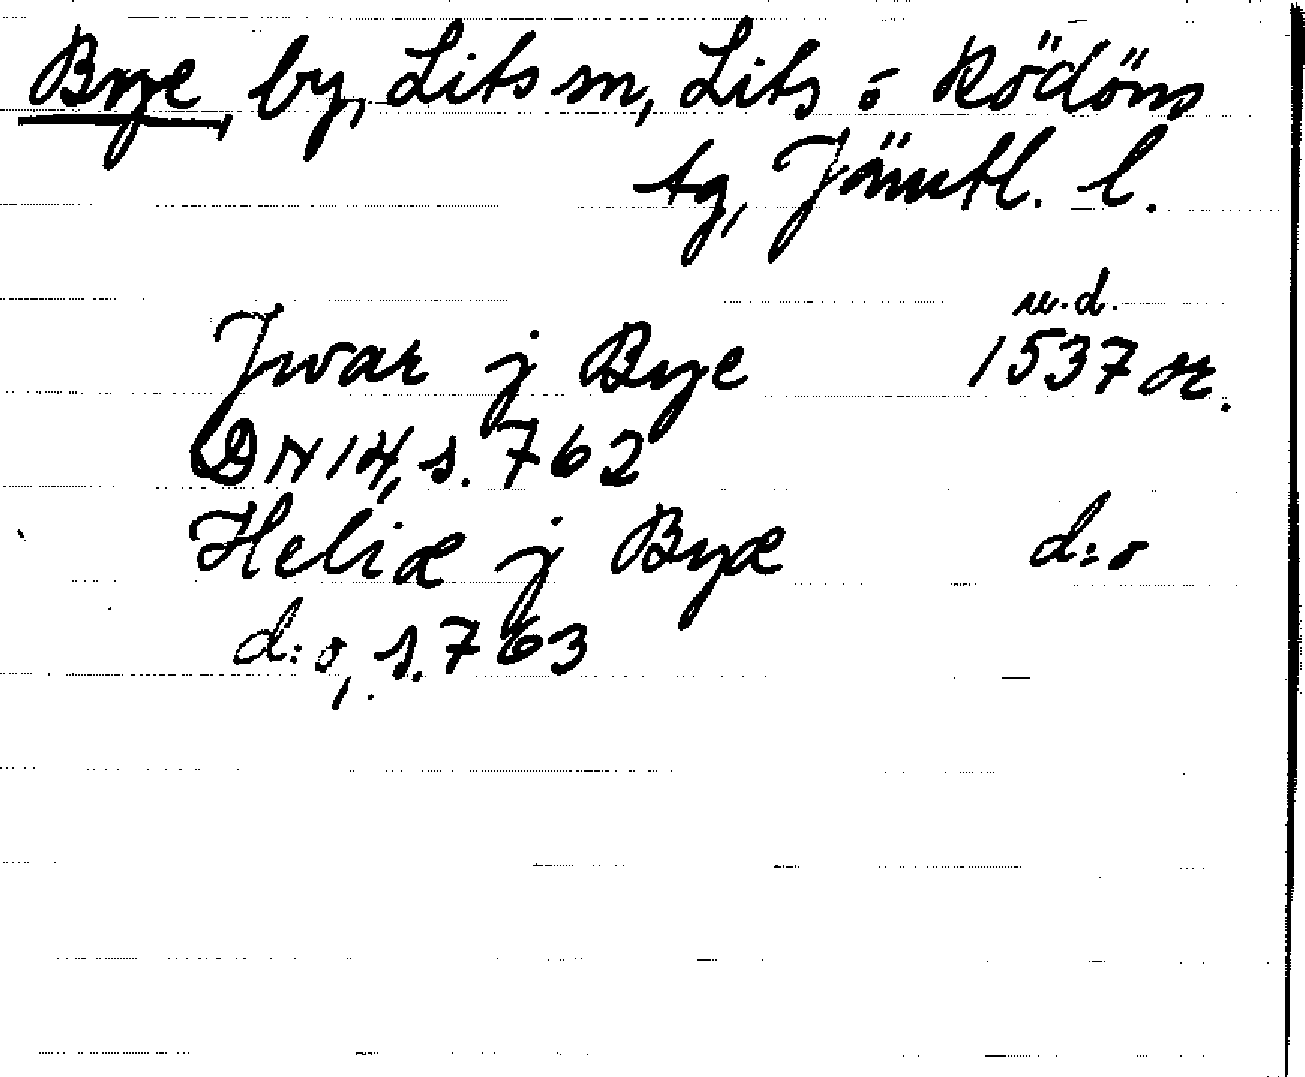 Bye by, Lits sn, Lits o Rödöns
tg, Jämtl. l.
u.d.
Jwar j Bye 1537 or.
DN 14, s. 762
Heliæ j Byæ d:o
d:o, s. 763